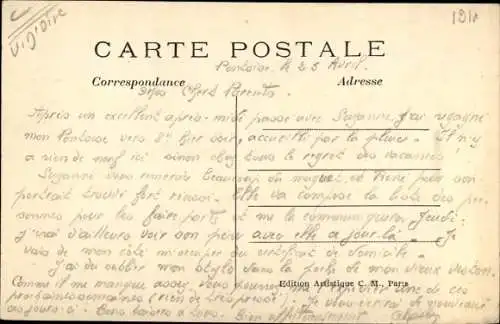 Vigidire
1910
CARTE POSTALE
Correspondance
Adresse
Pontoise, le 25 Avril.
Mes Chers Parents
Après un excellent après-midi passé avec Suzanne, j'ai regagné
mon Pontoise vers 8h hier soir, accueilli par la pluie. Il n'y
a rien de neuf ici sinon chez tous le regret des vacances!
Suzanne vous remercie beaucoup du muguet et René pour son
portrait trouvé fort réussi. Elle va composer la liste des per
sonnes pour les faire parts et me la communiquera Jeudi.
J'irai d'ailleurs voir son père avec elle ce jour-là. Je
vais de mon côté m'occuper du certificat de domicile.
J'ai dû oublier mon stylo dans la poche de mon vieux veston.
Comme il me manque assez, vous pourrez me l'expédier une de ces
prochaines semaines (rien de très pressé). Je vous écrirai de nouveau
Bons baisers à tous. Bien affectueusement
Edition Artistique C. M., Paris